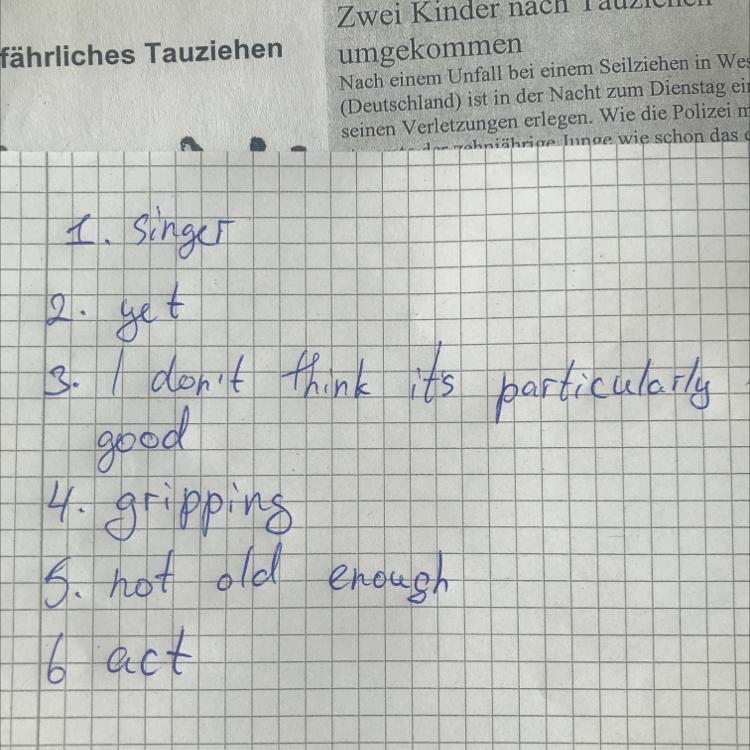 fährliches Tauziehen
Zwei Kinder nach Tauziehen
umgekommen
Nach einem Unfall bei einem Seilziehen in Wes
(Deutschland) ist in der Nacht zum Dienstag ei
seinen Verletzungen erlegen. Wie die Polizei m
der zehnjährige Junge wie schon das
1. singer
2. yet
3. I don't think it's particularly
good
4. gripping
5. not old enough
6 act